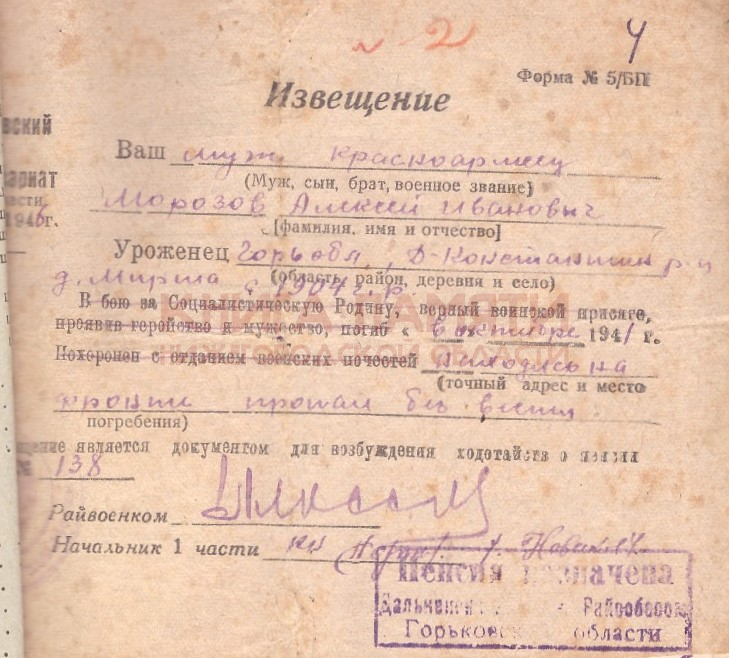 № 2
4
Форма № 5/БП
Извещение
вский
Ваш муж красноармеец
(Муж, сын, брат, военное звание)
ариат
Морозов Алексей Иванович
194 г.
[фамилия, имя и отчество]
Уроженец Горьк. обл., Д-Константин. р-н
(область, район, деревня и село)
д. 1904 г.
В бою за Социалистическую Родину, верный воинской присяге,
проявив геройство и мужество, погиб « в октябре 1941 г.
Похоронен с отданием воинских почестей находясь на
(точный адрес и место
фронте пропал без вести
погребения)
щение является документом для возбуждения ходотайств о пенсии
№ 138
Райвоенком
Начальник 1 части
Пенсия назначена
Райсобесом
Горьковской области
КНИГА ПАМЯТИ
НИЖЕГОРОДСКОЙ ОБЛАСТИ